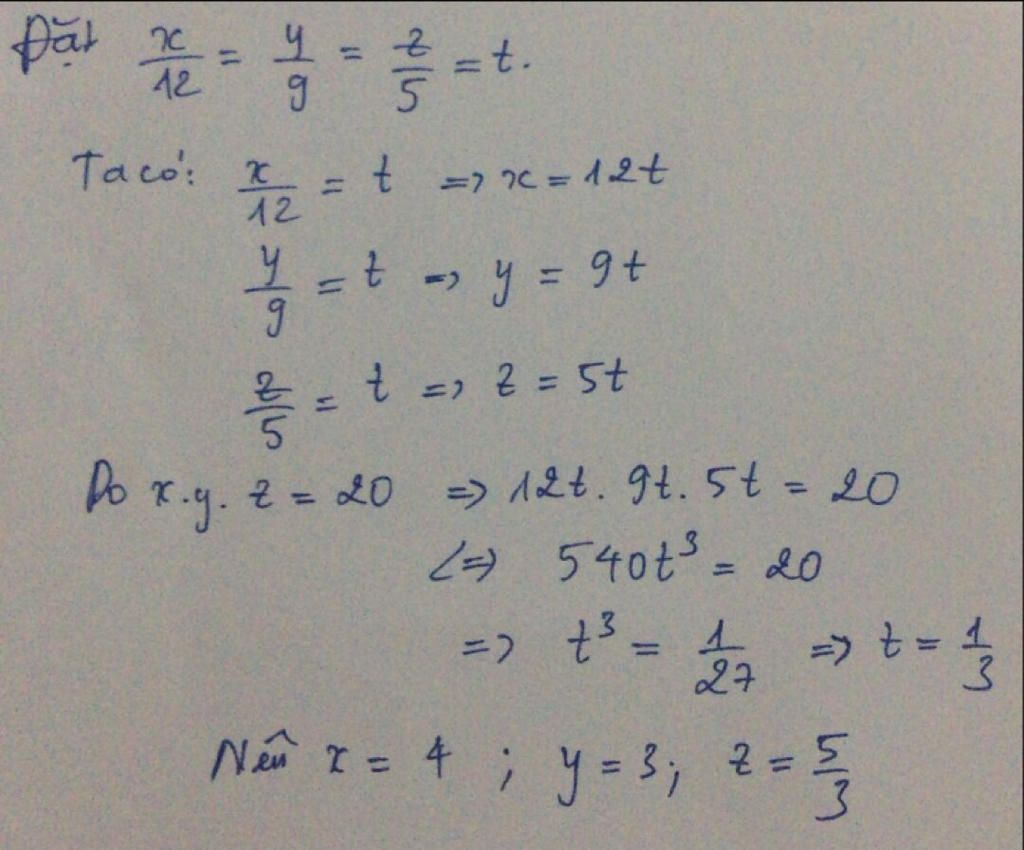 Đặt x/12 = y/9 = z/5 = t.
Ta có: x/12 = t => x = 12t
y/9 = t => y = 9t
z/5 = t => z = 5t
Do x.y.z = 20 => 12t. 9t. 5t = 20
<=> 540t³ = 20
=> t³ = 1/27 => t = 1/3
Nên x = 4 ; y = 3; z = 5/3